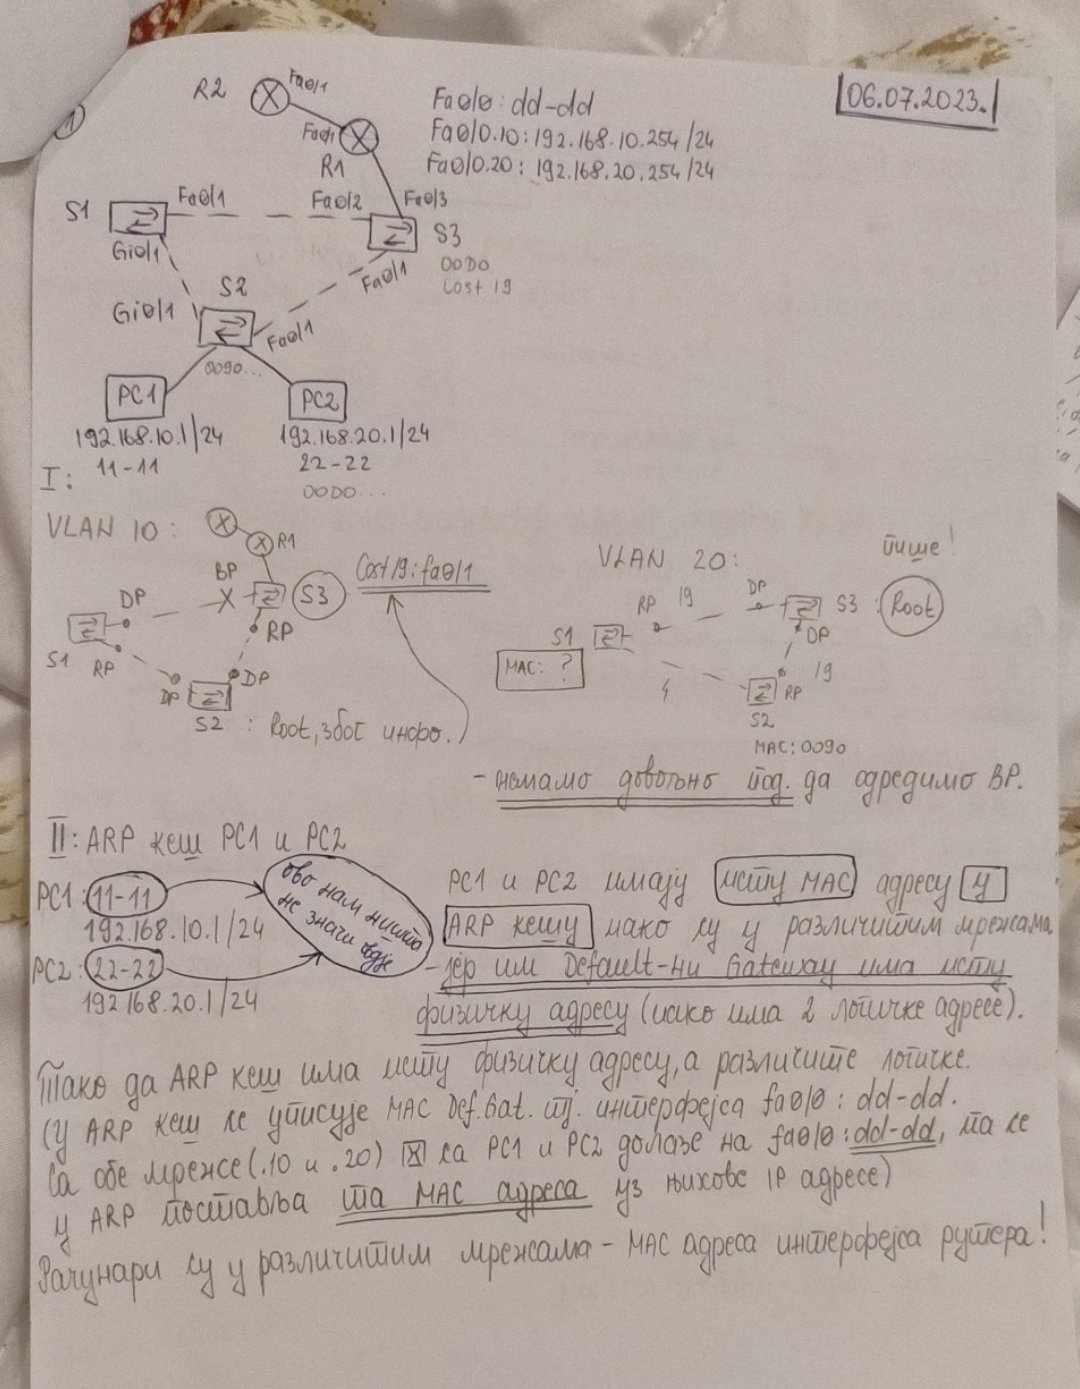 06.07.2023.
1
R2
Fa0/1
Fa0/1
R1
Fa0/0: dd-dd
Fa0/0.10: 192.168.10.254/24
Fa0/0.20: 192.168.20.254/24
S1
Fa0/1
Fa0/2
Fa0/3
S3
00D0
Cost 19
Gi0/1
Fa0/1
S2
Gi0/1
Fa0/1
0090...
PC1
PC2
192.168.10.1/24
192.168.20.1/24
11-11
22-22
00D0...
I:
VLAN 10:
R1
BP
Cost 19: fa0/1
S3
DP
RP
S1
RP
DP
DP
S2 : Root, због инфо.
VLAN 20:
пише!
RP 19
DP
S3 : Root
S1
DP
MAC: ?
4
19
RP
S2
MAC: 0090
- немамо довољно под. да одредимо BP.
II: ARP кеш PC1 и PC2
PC1: 11-11
192.168.10.1/24
PC2: 22-22
192.168.20.1/24
ово нам ништа
не значи овде
PC1 и PC2 имају исту MAC адресу у
ARP кешу иако су у различитим мрежама
- јер им Default-ни Gateway има исту
физичку адресу (иако има 2 логичке адресе).
Тако да ARP кеш има исту физичку адресу, а различите логичке.
(У ARP кеш се уписује MAC Def.Gat. тј. интерфејса fa0/0: dd-dd.
Са обе мреже (.10 и .20) са PC1 и PC2 долазе на fa0/0: dd-dd, па се
у ARP поставља та MAC адреса уз њихове IP адресе)
Рачунари су у различитим мрежама - MAC адреса интерфејса рутера!